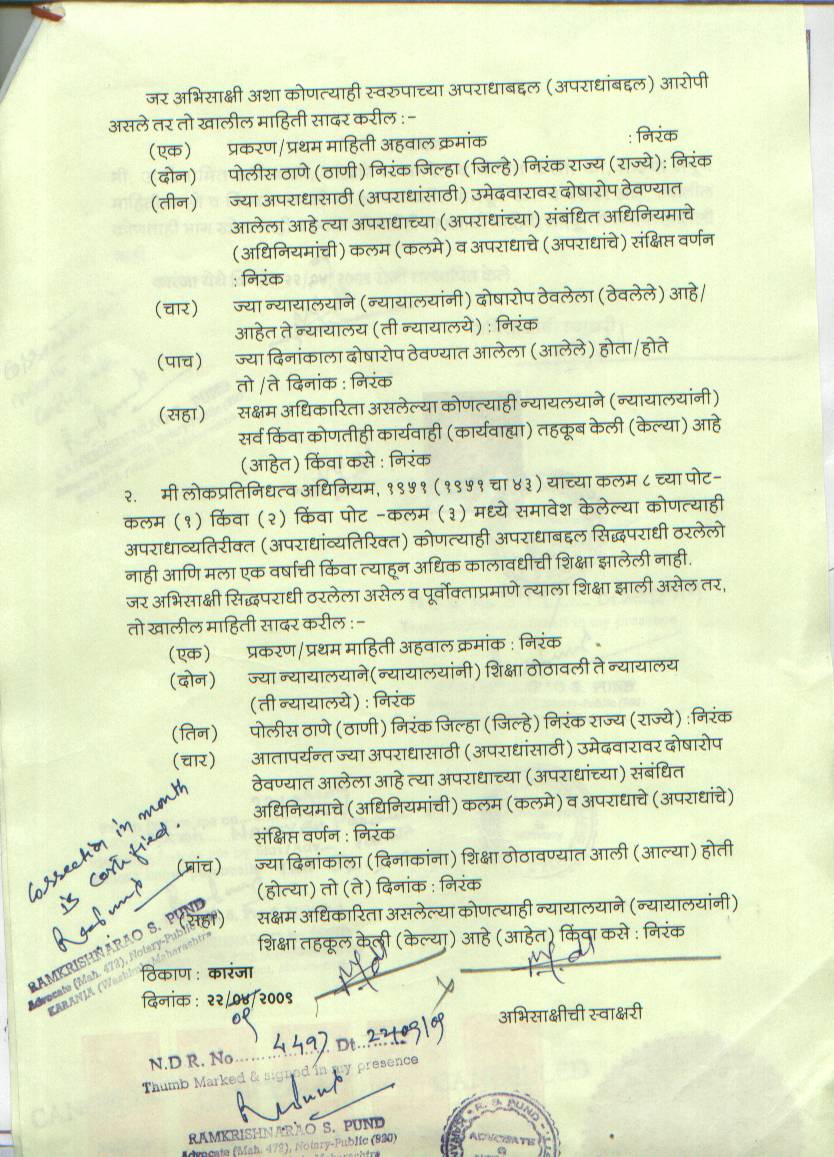 जर अभिसाक्षी अशा कोणत्याही स्वरुपाच्या अपराधाबद्दल (अपराधांबद्दल) आरोपी
असले तर तो खालील माहिती सादर करील :-
(एक) प्रकरण/प्रथम माहिती अहवाल क्रमांक : निरंक
(दोन) पोलीस ठाणे (ठाणी) निरंक जिल्हा (जिल्हे) निरंक राज्य (राज्ये) : निरंक
(तीन) ज्या अपराधासाठी (अपराधांसाठी) उमेदवारावर दोषारोप ठेवण्यात
आलेला आहे त्या अपराधाच्या (अपराधांच्या) संबंधित अधिनियमाचे
(अधिनियमांची) कलम (कलमे) व अपराधाचे (अपराधांचे) संक्षिप्त वर्णन
: निरंक
(चार) ज्या न्यायालयाने (न्यायालयांनी) दोषारोप ठेवलेला (ठेवलेले) आहे/
आहेत ते न्यायालय (ती न्यायालये) : निरंक
(पाच) ज्या दिनांकाला दोषारोप ठेवण्यात आलेला (आलेले) होता/होते
तो /ते दिनांक : निरंक
(सहा) सक्षम अधिकारिता असलेल्या कोणत्याही न्यायलयाने (न्यायालयांनी)
सर्व किंवा कोणतीही कार्यवाही (कार्यवाह्या) तहकूब केली (केल्या) आहे
(आहेत) किंवा कसे : निरंक
२. मी लोकप्रतिनिधत्व अधिनियम, १९५१ (१९५१ चा ४३) याच्या कलम ८ च्या पोट-
कलम (१) किंवा (२) किंवा पोट -कलम (३) मध्ये समावेश केलेल्या कोणत्याही
अपराधाव्यतिरीक्त (अपराधांव्यतिरिक्त) कोणत्याही अपराधाबद्दल सिद्धपराधी ठरलेलो
नाही आणि मला एक वर्षाची किंवा त्याहून अधिक कालावधीची शिक्षा झालेली नाही.
जर अभिसाक्षी सिद्धपराधी ठरलेला असेल व पूर्वोक्ताप्रमाणे त्याला शिक्षा झाली असेल तर,
तो खालील माहिती सादर करील :-
(एक) प्रकरण/प्रथम माहिती अहवाल क्रमांक : निरंक
(दोन) ज्या न्यायालयाने(न्यायालयांनी) शिक्षा ठोठावली ते न्यायालय
(ती न्यायालये) : निरंक
(तिन) पोलीस ठाणे (ठाणी) निरंक जिल्हा (जिल्हे) निरंक राज्य (राज्ये) :निरंक
(चार) आतापर्यन्त ज्या अपराधासाठी (अपराधांसाठी) उमेदवारावर दोषारोप
ठेवण्यात आलेला आहे त्या अपराधाच्या (अपराधांच्या) संबंधित
अधिनियमाचे (अधिनियमांची) कलम (कलमे) व अपराधाचे (अपराधांचे)
संक्षिप्त वर्णन : निरंक
(पांच) ज्या दिनांकांला (दिनाकांना) शिक्षा ठोठावण्यात आली (आल्या) होती
(होत्या) तो (ते) दिनांक : निरंक
(सहा) सक्षम अधिकारिता असलेल्या कोणत्याही न्यायालयाने (न्यायालयांनी)
शिक्षा तहकूल केली (केल्या) आहे (आहेत) किंवा कसे : निरंक
Correction in month
is certified.
RAMKRISHNARAO S. PUND
Advocate (Mah. 472), Notary-Public
KARANJA (Washim) Maharashtra
ठिकाण : कारंजा
दिनांक : २२/०४/२००९
09
अभिसाक्षीची स्वाक्षरी
N.D R. No. 4497 Dt. 22/09/09
Thumb Marked & signed in my presence
RAMKRISHNARAO S. PUND
Advocate (Mah. 472), Notary-Public (920)
R. S. PUND
ADVOCATE